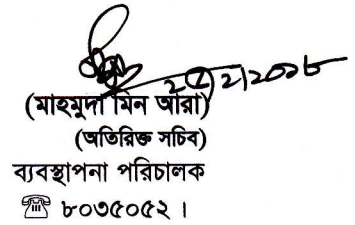 (মাহমুদা মিন আরা)
(অতিরিক্ত সচিব)
ব্যবস্থাপনা পরিচালক
☎ ৮০৩৫০৫২ ।